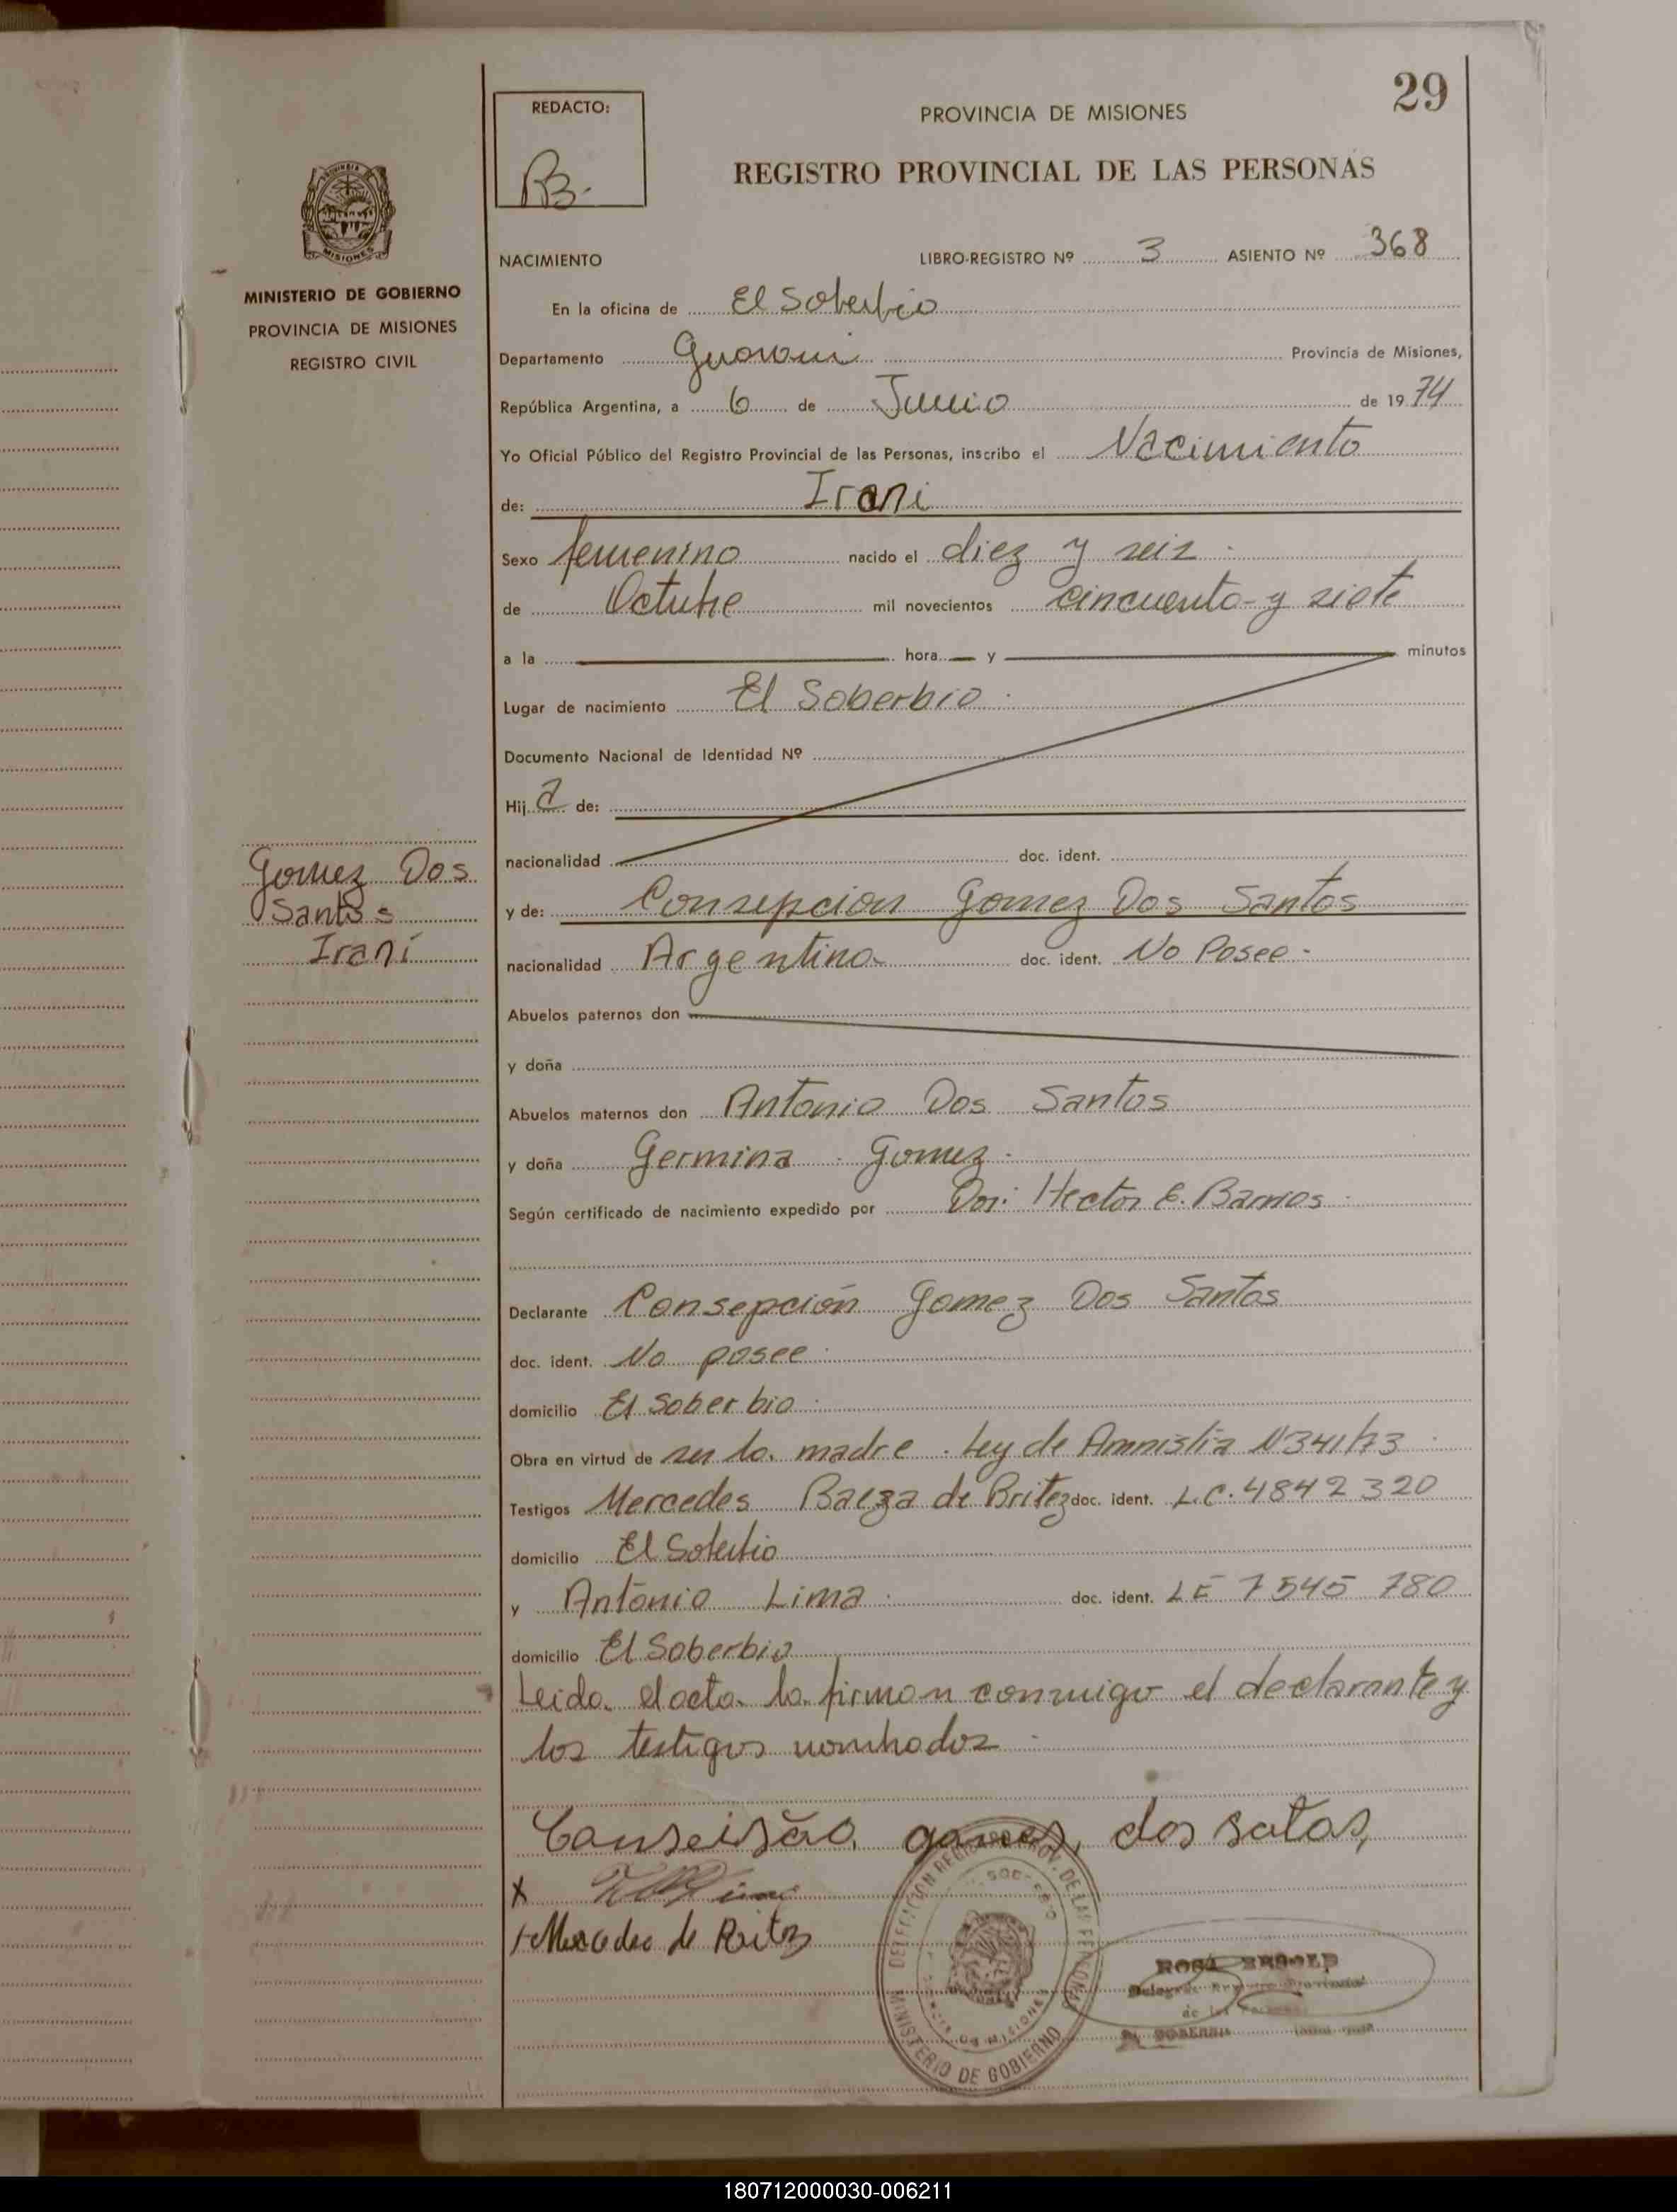 29
REDACTO:
B.
PROVINCIA DE MISIONES
REGISTRO PROVINCIAL DE LAS PERSONAS
MISIONES
MINISTERIO DE GOBIERNO
PROVINCIA DE MISIONES
REGISTRO CIVIL
NACIMIENTO LIBRO-REGISTRO Nº 3 ASIENTO Nº 368
En la oficina de El Soberbio
Departamento Guarani Provincia de Misiones,
República Argentina, a 6 de Junio de 1974
Yo Oficial Público del Registro Provincial de las Personas, inscribo el Nacimiento
de: Irani
Sexo femenino nacido el diez y seis.
de Octubre mil novecientos cincuenta y siete
a la hora y minutos
Lugar de nacimiento El Soberbio.
Documento Nacional de Identidad Nº
Hij a de:
nacionalidad doc. ident.
Gomez Dos
Santos
Irani
y de: Consepcion Gomez Dos Santos
nacionalidad Argentina- doc. ident. No Posee-
Abuelos paternos don
y doña
Abuelos maternos don Antonio Dos Santos
y doña Germina Gomez.
Según certificado de nacimiento expedido por Dor: Hector E. Barrios.
Declarante Consepción Gomez Dos Santos
doc. ident. No posee.
domicilio El Soberbio.
Obra en virtud de ser la madre. Ley de Amnistia N341/73.
Testigos Mercedes Baeza de Britez doc. ident. L.C. 4842320
domicilio El Soberbio
y Antonio Lima. doc. ident. LE 7545 780
domicilio El Soberbio
Leida el acta la firman conmigo el declarante y
los testigos nombrados.
Conseisão gomes, dos satos,
x
+Mercedes de Britez
DELEGACION REGISTRO PROV. DE LAS PERSONAS
MINISTERIO DE GOBIERNO
ROSA
180712000030-006211